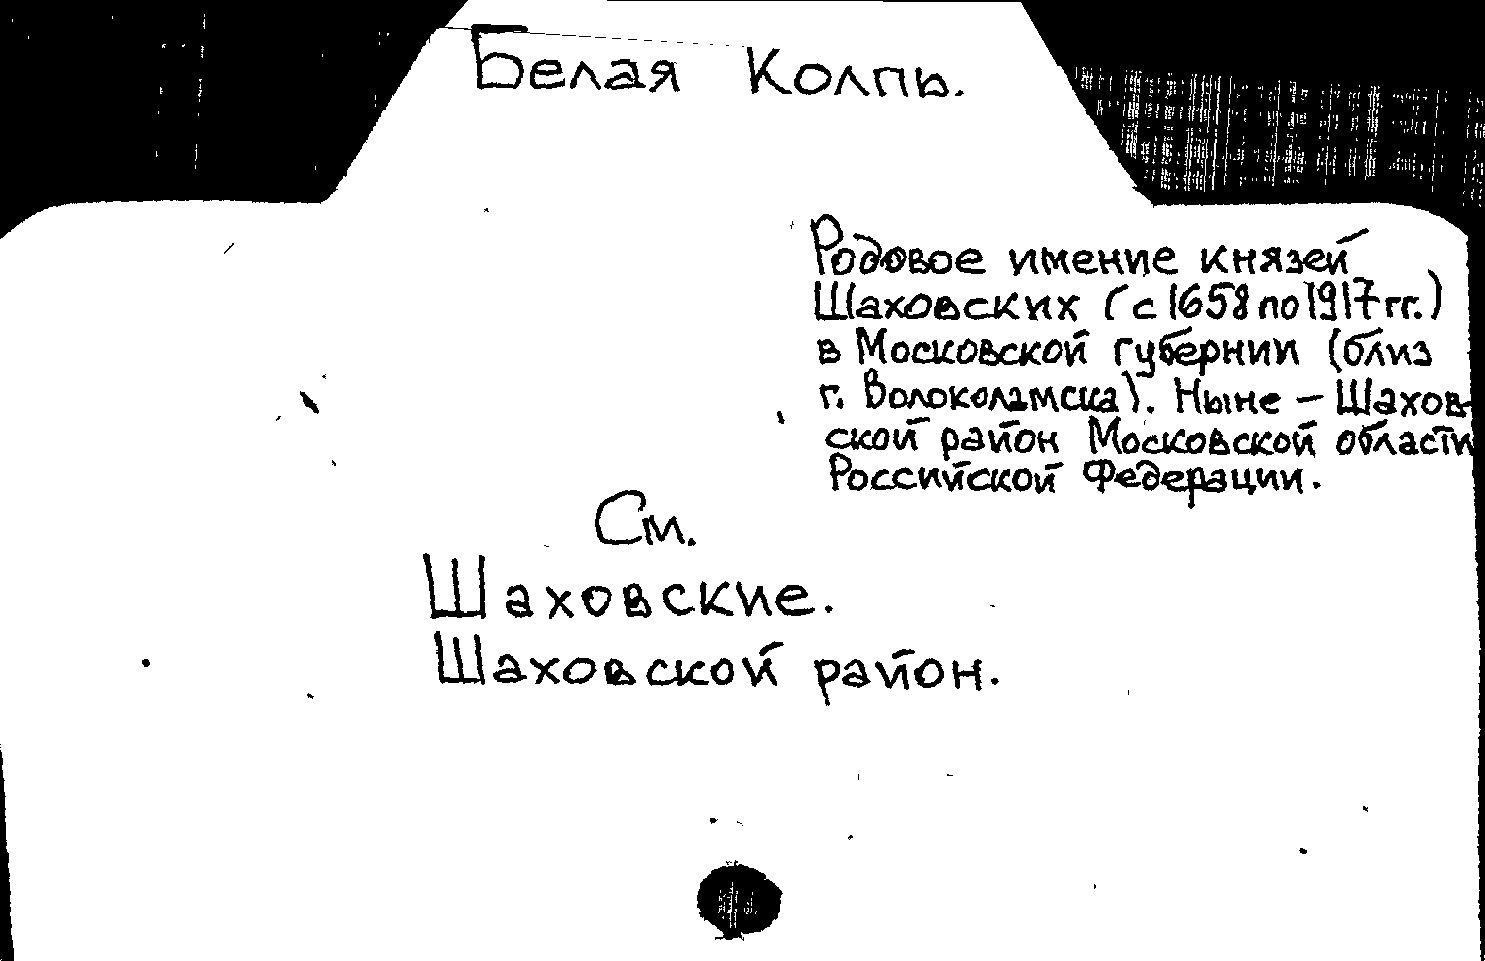 Белая Колпь.
Родовое имение князей
Шаховских (с 1658 по 1917 гг.)
в Московской губернии (близ
г. Волоколамска). Ныне – Шахов-
ской район Московской области
Российской Федерации.
См.
Шаховские.
Шаховской район.